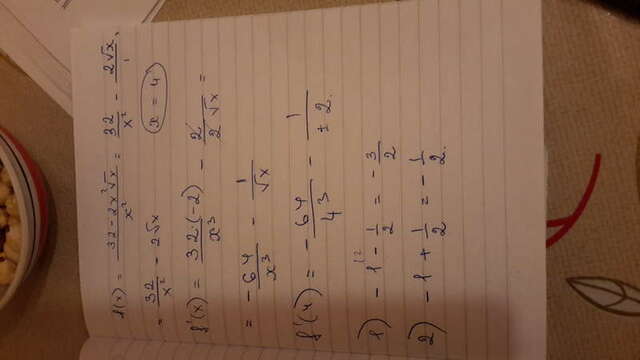 f(x) = (32 - 2x²√x)/x² = 32/x² - 2√x/1,
= 32/x² - 2√x x = 4
f'(x) = 32·(-2)/x³ - 2/(2√x) =
= -64/x³ - 1/√x
f'(4) = -64/4³ - 1/(±2).
1) -1 - 1/2 = -3/2
2) -1 + 1/2 = -1/2.